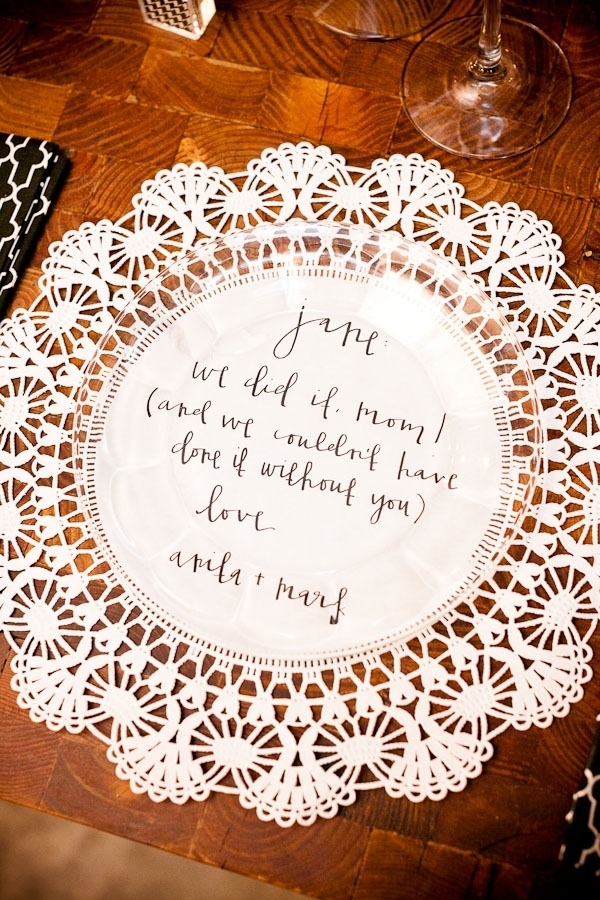 jane:
we did it, mom!
(and we couldn't have
done it without you)
love
anita + mark